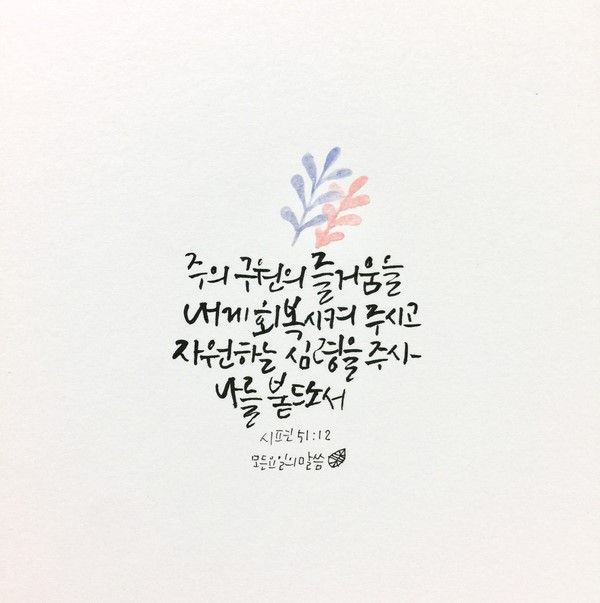 주의 구원의 즐거움을
내게 회복시켜 주시고
자원하는 심령을 주사
나를 붙드소서
시편 51:12
모든요일의말씀